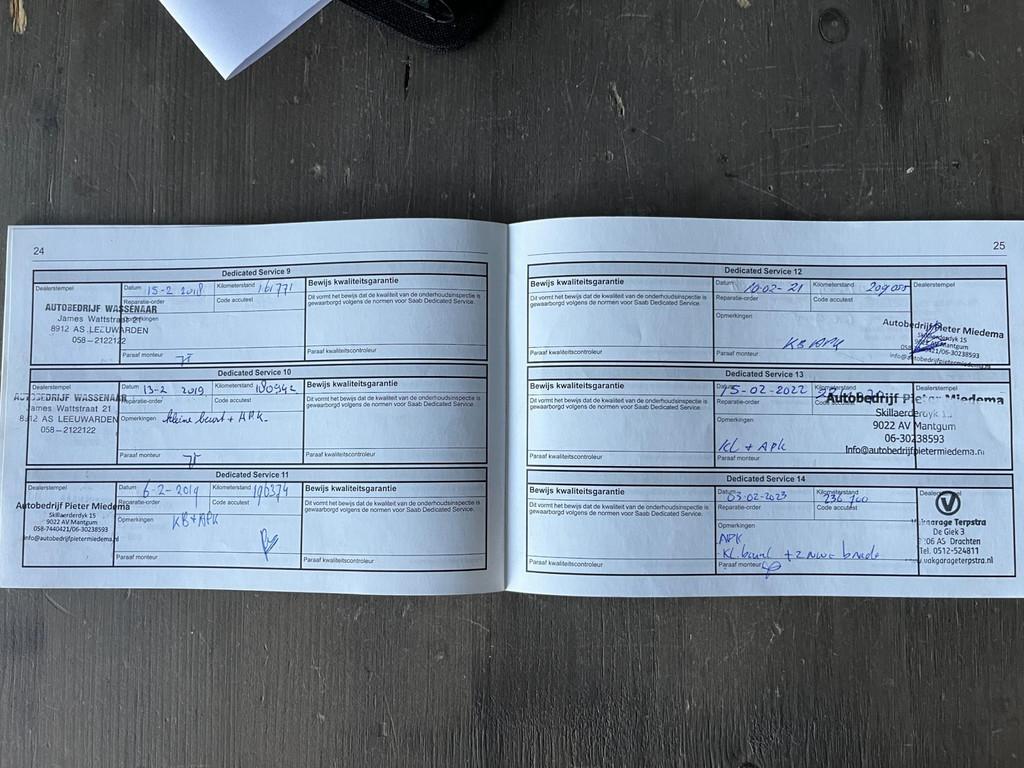 24
Dedicated Service 9
Dealerstempel
Datum 15-2 2018
Kilometerstand 161771
Bewijs kwaliteitsgarantie
Reparatie-order
Code accutest
Dit vormt het bewijs dat de kwaliteit van de onderhoudsinspectie is
gewaarborgd volgens de normen voor Saab Dedicated Service.
AUTOBEDRIJF WASSENAAR
James Wattstraat 21
8912 AS LEEUWARDEN
058-2122122
Opmerkingen
Paraaf monteur
Paraaf kwaliteitscontroleur
Dedicated Service 10
Dealerstempel
Datum 13-2 2019
Kilometerstand 180942
Bewijs kwaliteitsgarantie
Reparatie-order
Code accutest
Dit vormt het bewijs dat de kwaliteit van de onderhoudsinspectie is
gewaarborgd volgens de normen voor Saab Dedicated Service.
AUTOBEDRIJF WASSENAAR
James Wattstraat 21
8912 AS LEEUWARDEN
058-2122122
Opmerkingen kleine beurt + APK.
Paraaf monteur
Paraaf kwaliteitscontroleur
Dedicated Service 11
Dealerstempel
Datum 6-2-2019
Kilometerstand 196374
Bewijs kwaliteitsgarantie
Reparatie-order
Code accutest
Dit vormt het bewijs dat de kwaliteit van de onderhoudsinspectie is
gewaarborgd volgens de normen voor Saab Dedicated Service.
Autobedrijf Pieter Miedema
Skillaerderdyk 15
9022 AV Mantgum
058-7440421/06-30238593
info@autobedrijfpietermiedema.nl
Opmerkingen KB + APK
Paraaf monteur
Paraaf kwaliteitscontroleur
25
Dedicated Service 12
Bewijs kwaliteitsgarantie
Datum 10-02-21
Kilometerstand 209055
Dealerstempel
Dit vormt het bewijs dat de kwaliteit van de onderhoudsinspectie is
gewaarborgd volgens de normen voor Saab Dedicated Service.
Reparatie-order
Code accutest
Opmerkingen
KB APK
Autobedrijf Pieter Miedema
Skillaerderdyk 15
9022 AV Mantgum
058-7440421/06-30238593
info@autobedrijfpietermiedema.nl
Paraaf kwaliteitscontroleur
Paraaf monteur
Dedicated Service 13
Bewijs kwaliteitsgarantie
Datum 15-02-2022
Kilometerstand
Dealerstempel
Dit vormt het bewijs dat de kwaliteit van de onderhoudsinspectie is
gewaarborgd volgens de normen voor Saab Dedicated Service.
Reparatie-order
Code accutest
Opmerkingen
KL + APK
Autobedrijf Pieter Miedema
Skillaerderdyk
9022 AV Mantgum
06-30238593
Info@autobedrijfpietermiedema.nl
Paraaf kwaliteitscontroleur
Paraaf monteur
Dedicated Service 14
Bewijs kwaliteitsgarantie
Datum 03-02-2023
Kilometerstand 236 100
Dealerstempel
Dit vormt het bewijs dat de kwaliteit van de onderhoudsinspectie is
gewaarborgd volgens de normen voor Saab Dedicated Service.
Reparatie-order
Code accutest
Opmerkingen
APK
-KL beurt + 2 nwe bande
Vakgarage Terpstra
De Giek 3
9206 AS Drachten
Tel. 0512-524811
www.vakgarageterpstra.nl
Paraaf kwaliteitscontroleur
Paraaf monteur